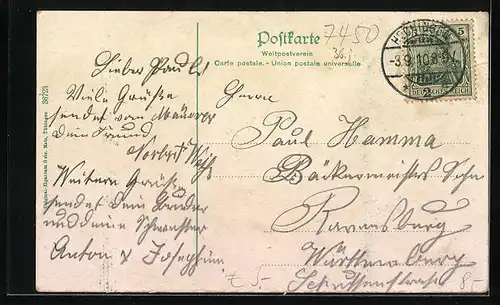 Postkarte
Weltpostverein
Carte postale. - Union postale universelle
7450
36.
-3.9.10.8-9
2
5
DEUTSCHES REICH
36723
Lieber Paul!
Viele Grüße
sendet von
Dein Freund
Norbert
Weitere Grüße
sendet Dein Bruder
und deine Schwester
Anton & Josephine
Herrn
Paul Hamma
Bäckermeisters Sohn
Ravensburg
Württemberg
Schussenstraße
5-
8-